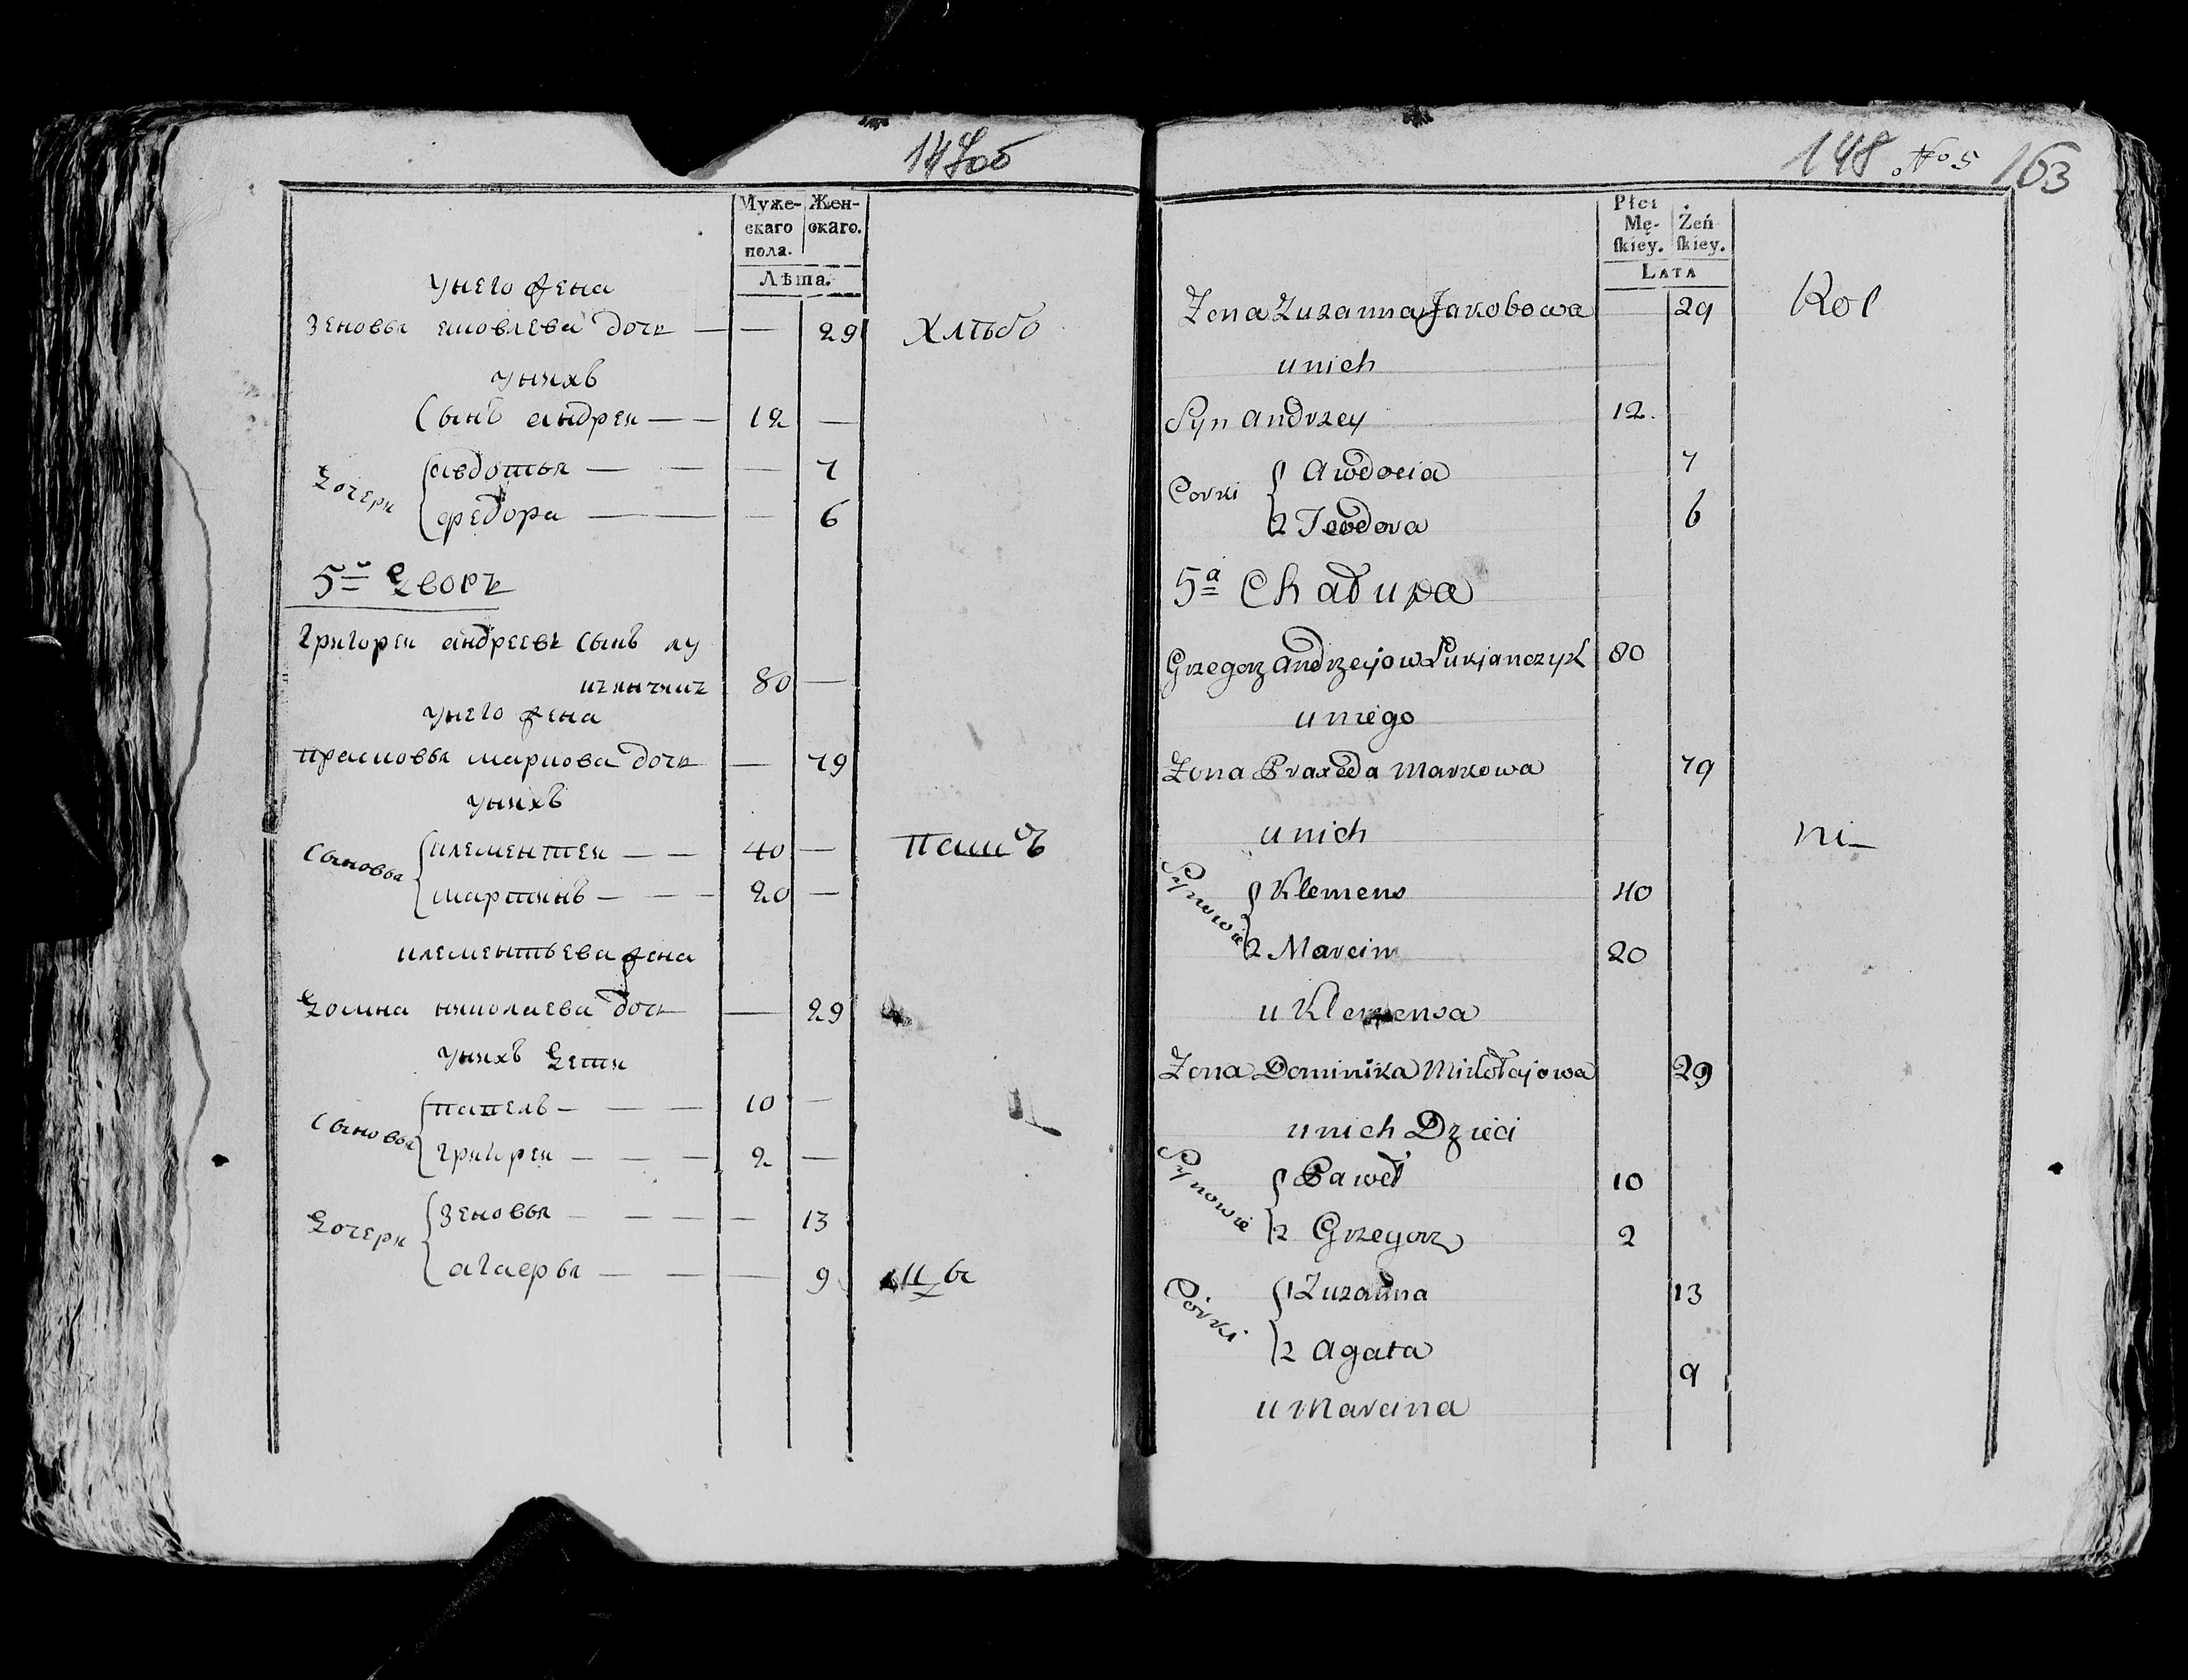 147об
Муже-
скаго
пола.
Жен-
скаго.
Лѣта.
унего жена
зеновья яковлева дочь — — 29 хлѣбо
унихъ
сынъ андреи — — 12 —
дочери
авдотья — — — 7
федора — — — 6
5й дворъ
григореи андреевъ сынъ лу
кьянчикъ 80 —
унего жена
прасковья маркова дочь — 79
унихъ
сыновья
клементеи — — 40 — паш ъ
мартинъ — — — 20 —
клементьева жена
домна николаева дочь — 29
унихъ дети
сыновья
павелъ — — — 10 —
григореи — — — 2 —
дочери
зеновья — — — — 13
агаерья — — — 9
148 No 5 163
Płci
Mę-
ſkiey.
Żeń
ſkiey.
LATA
Żona Zuzanna Jakobowa 29 Rol
u nich
Syn Andrzey 12.
Corki
Awdocia 7
2 Teodora 6
5a Chałupa
Grzegorz Andrzejow Łukjanczyk 80
u niego
Żona Praxeda Markowa 79
u nich ni
Synowie
Klemens 40
2 Marcin 20
u Klemensa
Żona Dominika Mikołajowa 29
u nich Dzieci
Synowie
Paweł 10
2 Grzegorz 2
Córki
1 Zuzanna 13
2 Agata 9
u Marcina